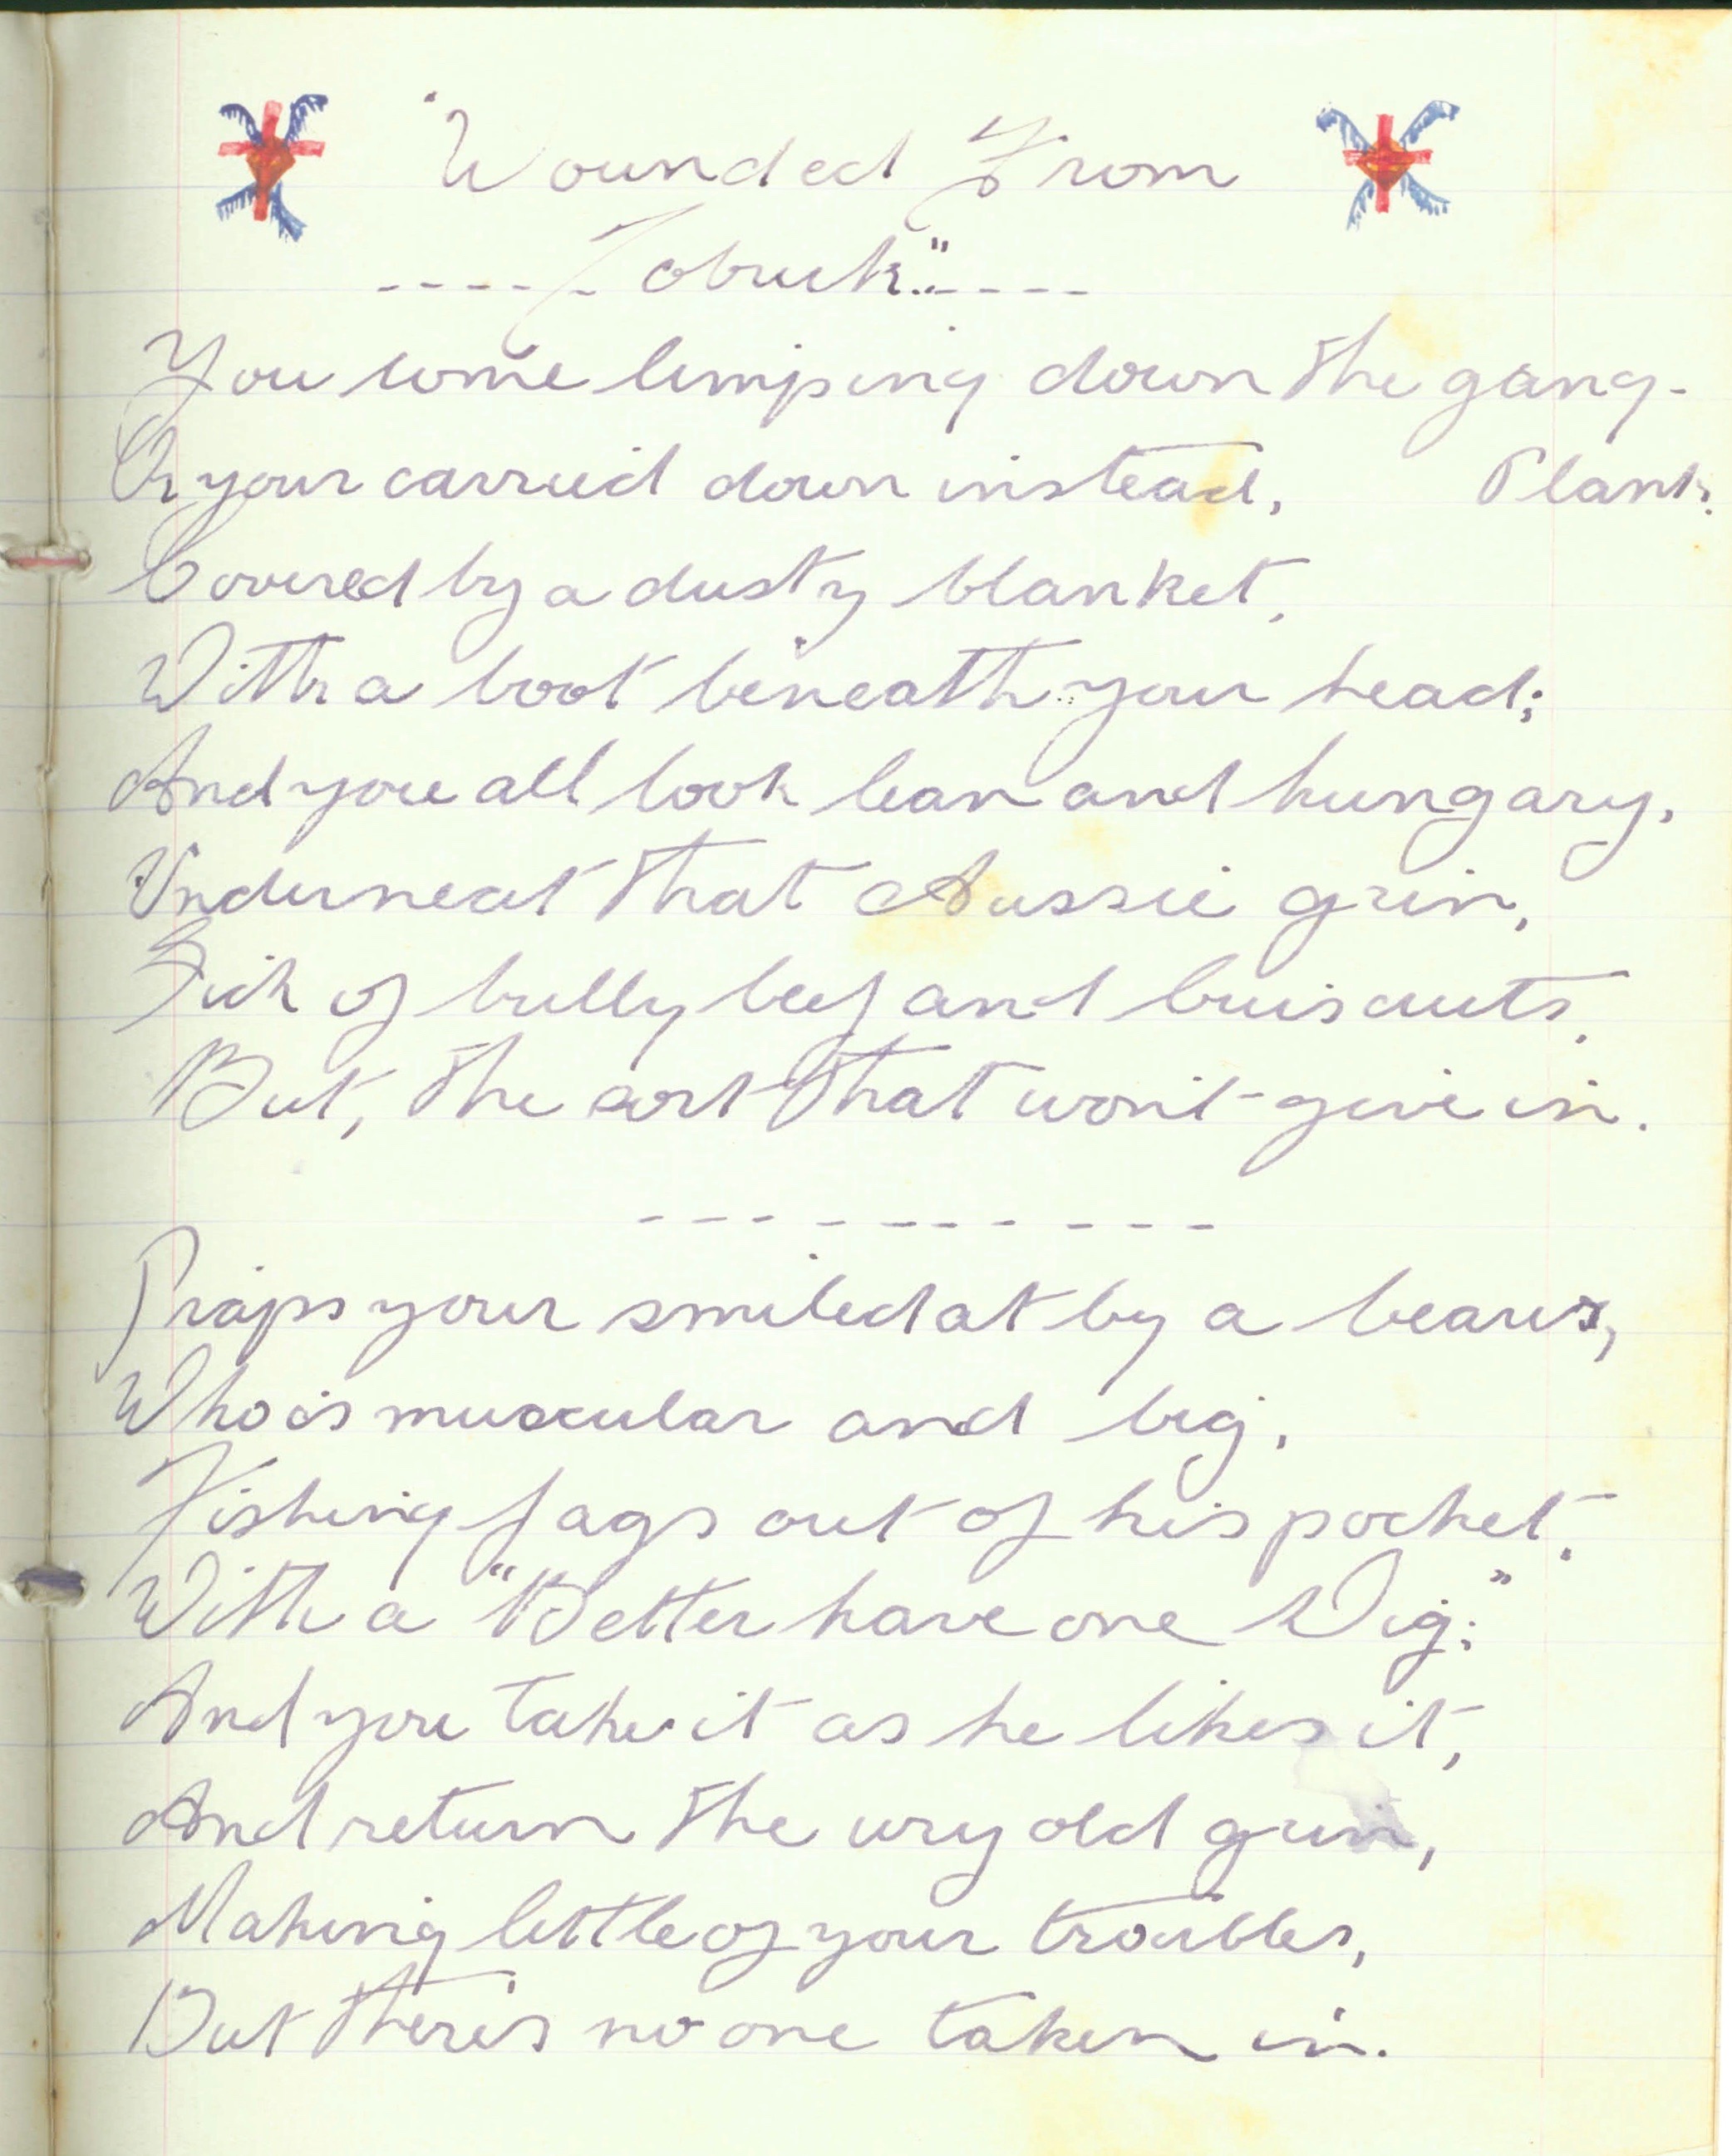 "Wounded From
----- Tobruk."----
You come limping down the gang-
Or your carried down instead,      Plank.
Covered by a dusty blanket,
With a boot beneath your head;
And you all look lean and hungary,
Underneat that Aussie grin,
Sick of bully beef and buiscuits,
But, the sort that won't give in.
- - - - - - - - - - -
Praps your smiled at by a bearer,
Who is muscular and big,
Fishing fags out of his pocket,
With a "Better have one Dig;"
And you take it as he likes it,
And return the wry old grin,
Making little of your troubles,
But there's no one taken in.